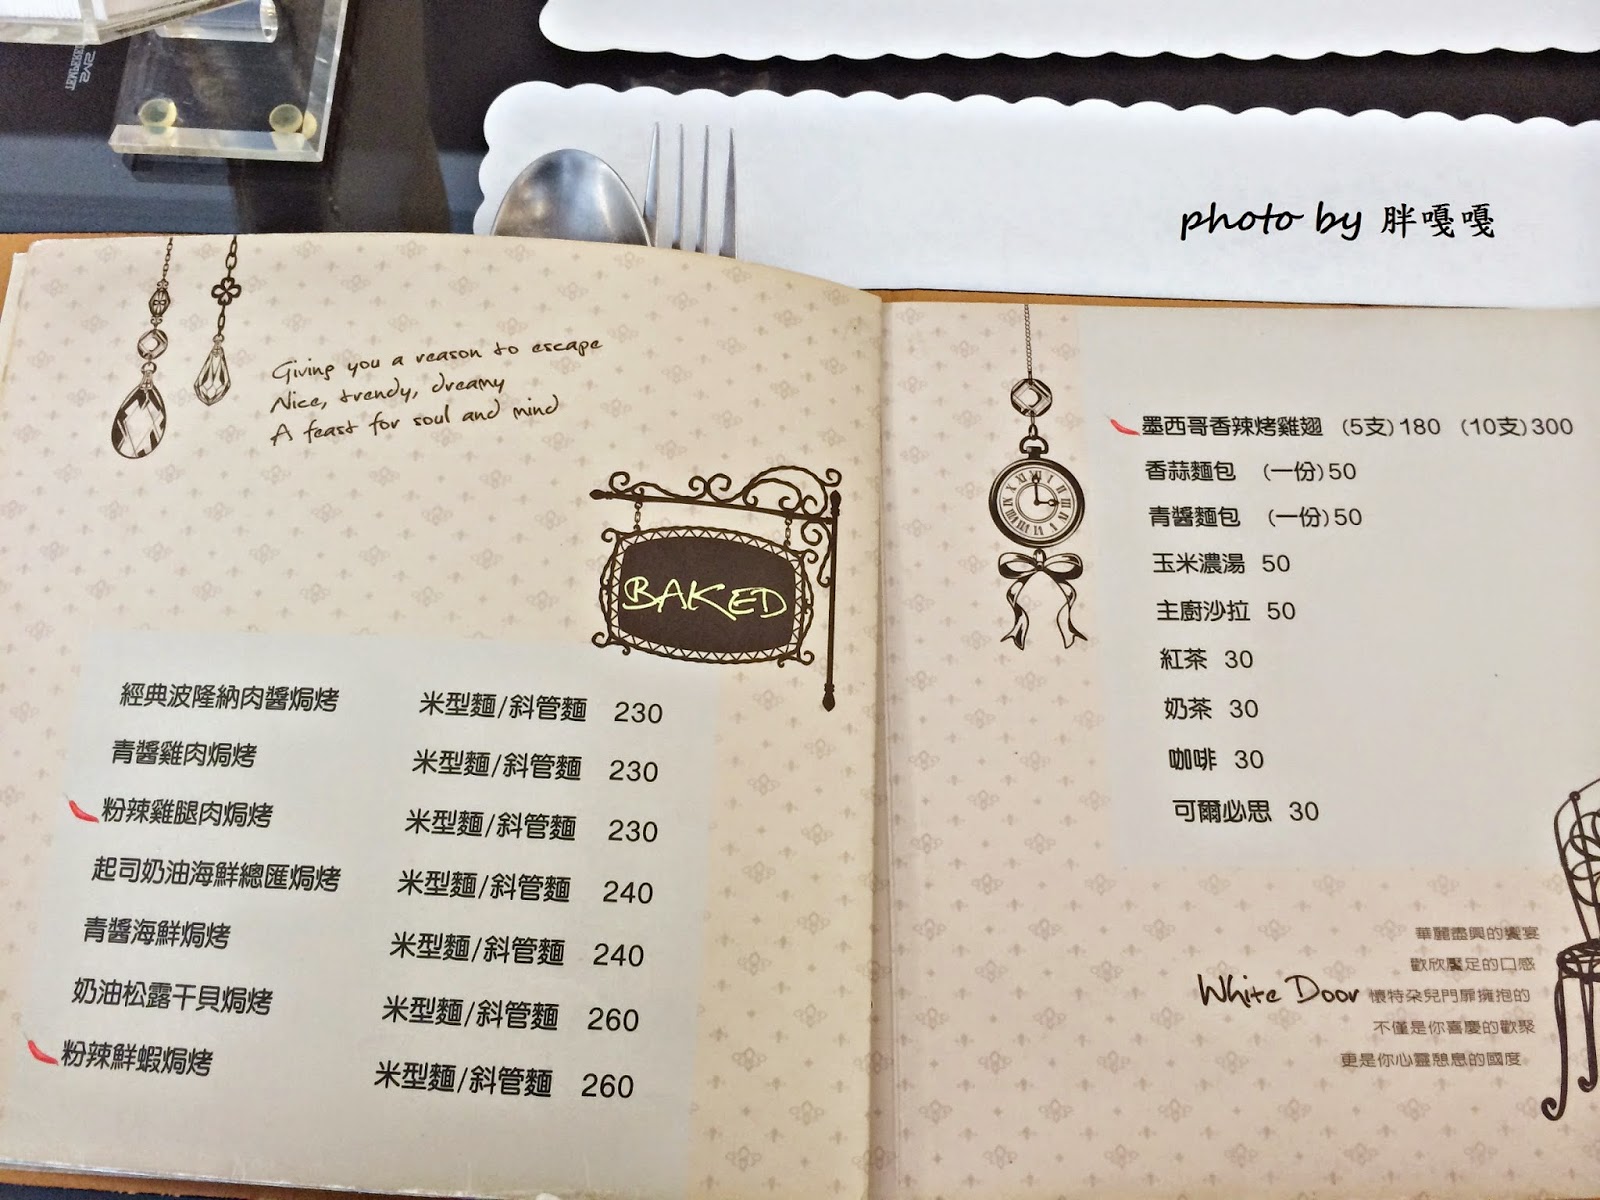 photo by 胖嘎嘎
Giving you a reason to escape
Nice, trendy, dreamy
A feast for soul and mind
BAKED
經典波隆納肉醬焗烤 米型麵/斜管麵 230
青醬雞肉焗烤 米型麵/斜管麵 230
粉辣雞腿肉焗烤 米型麵/斜管麵 230
起司奶油海鮮總匯焗烤 米型麵/斜管麵 240
青醬海鮮焗烤 米型麵/斜管麵 240
奶油松露干貝焗烤 米型麵/斜管麵 260
粉辣鮮蝦焗烤 米型麵/斜管麵 260
墨西哥香辣烤雞翅 (5支)180 (10支)300
香蒜麵包 (一份)50
青醬麵包 (一份)50
玉米濃湯 50
主廚沙拉 50
紅茶 30
奶茶 30
咖啡 30
可爾必思 30
華麗盡興的饗宴
歡欣魘足的口感
White Door 懷特朵兒門扉擁抱的
不僅是你喜慶的歡聚
更是你心靈憩息的國度